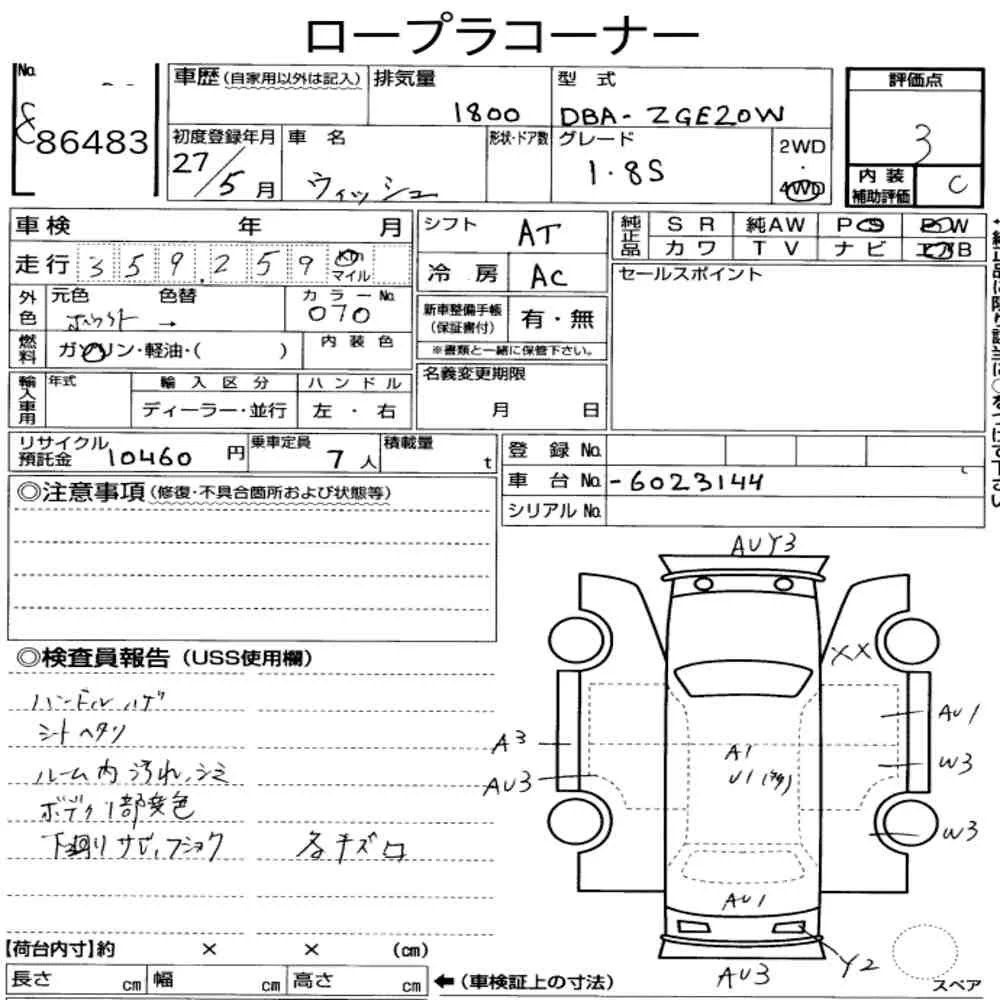 ロープラコーナー
No.
86483
車歴(自家用以外は記入)
排気量
1800
型 式
DBA-ZGE20W
評価点
3
初度登録年月
27/5月
車 名
ウィッシュ
形状・ドア数
グレード
1.8S
2WD
・
4WD
内 装
補助評価
C
車検 年 月
シフト
AT
純正品
S R
純AW
P S
P W
カ ワ
T V
ナ ビ
エアB
走行
359,259
Km
マイル
冷 房
AC
セールスポイント
外色
元色
色替
カラーNo.
ホワイト →
070
新車整備手帳
(保証書付)
有・無
※書類と一緒に保管下さい。
燃料
ガソリン・軽油・( )
内 装 色
輸入車用
年式
輸 入 区 分
ハ ン ド ル
ディーラー・並行
左 ・ 右
名義変更期限
月 日
リサイクル
預託金
10460 円
乗車定員
7 人
積載量
t
登 録 No.
車 台 No.
-6023144
シリアル No.
◎注意事項(修復・不具合箇所および状態等)
◎検査員報告(USS使用欄)
ハンドルハゲ
シートヘタリ
ルーム内汚れ、シミ
ボデー1部変色
下廻りサビ、フショク
各キズ凹
AUY3
XX
AU1
A3
W3
AU3
A1
U1
W3
AU1
AU3
Y2
スペア
【荷台内寸】約 × × (cm)
長さ cm
幅 cm
高さ cm
←(車検証上の寸法)